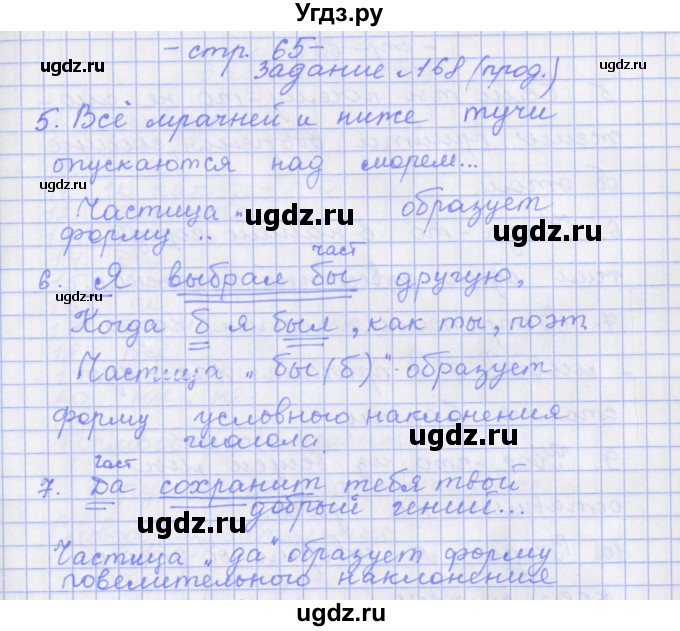 Угдз.ру
- стр. 65 -
Задание №168 (прод.)
5. Всё мрачней и ниже тучи
опускаются над морем...
Частица „ образует
форму ..
част
6. Я выбрал бы другую,
Когда б я был, как ты, поэт.
Частица „бы (б)" образует
форму условного наклонения
глагола.
част
7. Да сохранит тебя твой
добрый гений...
Частица „да" образует форму
повелительного наклонения
ugdz.ru
ugdz.ru
ugdz.ru
ugdz.ru
ugdz.ru
ugdz.ru
ugdz.ru
ugdz.ru
ugdz.ru
ugdz.ru
ugdz.ru